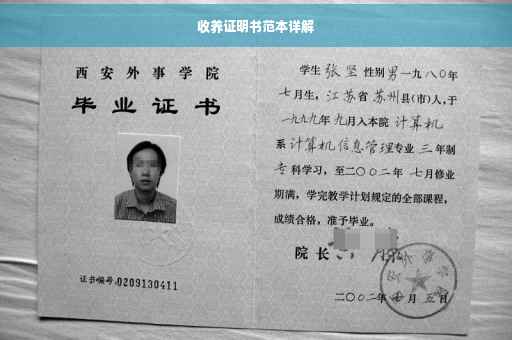 收养证明书范本详解
西安外事学院
毕业证书
证书编号:0209130411
学生 张坚 性别 男 一九八〇年
七月生，江苏省 苏州县(市)人,于
一九九九年 九月入本院 计算机
系 计算机信息管理专业 三 年制
专科学习，至二〇〇二年 七月修业
期满，学完教学计划规定的全部课程，
成绩合格，准予毕业。
院长
二〇〇二年 月 五日